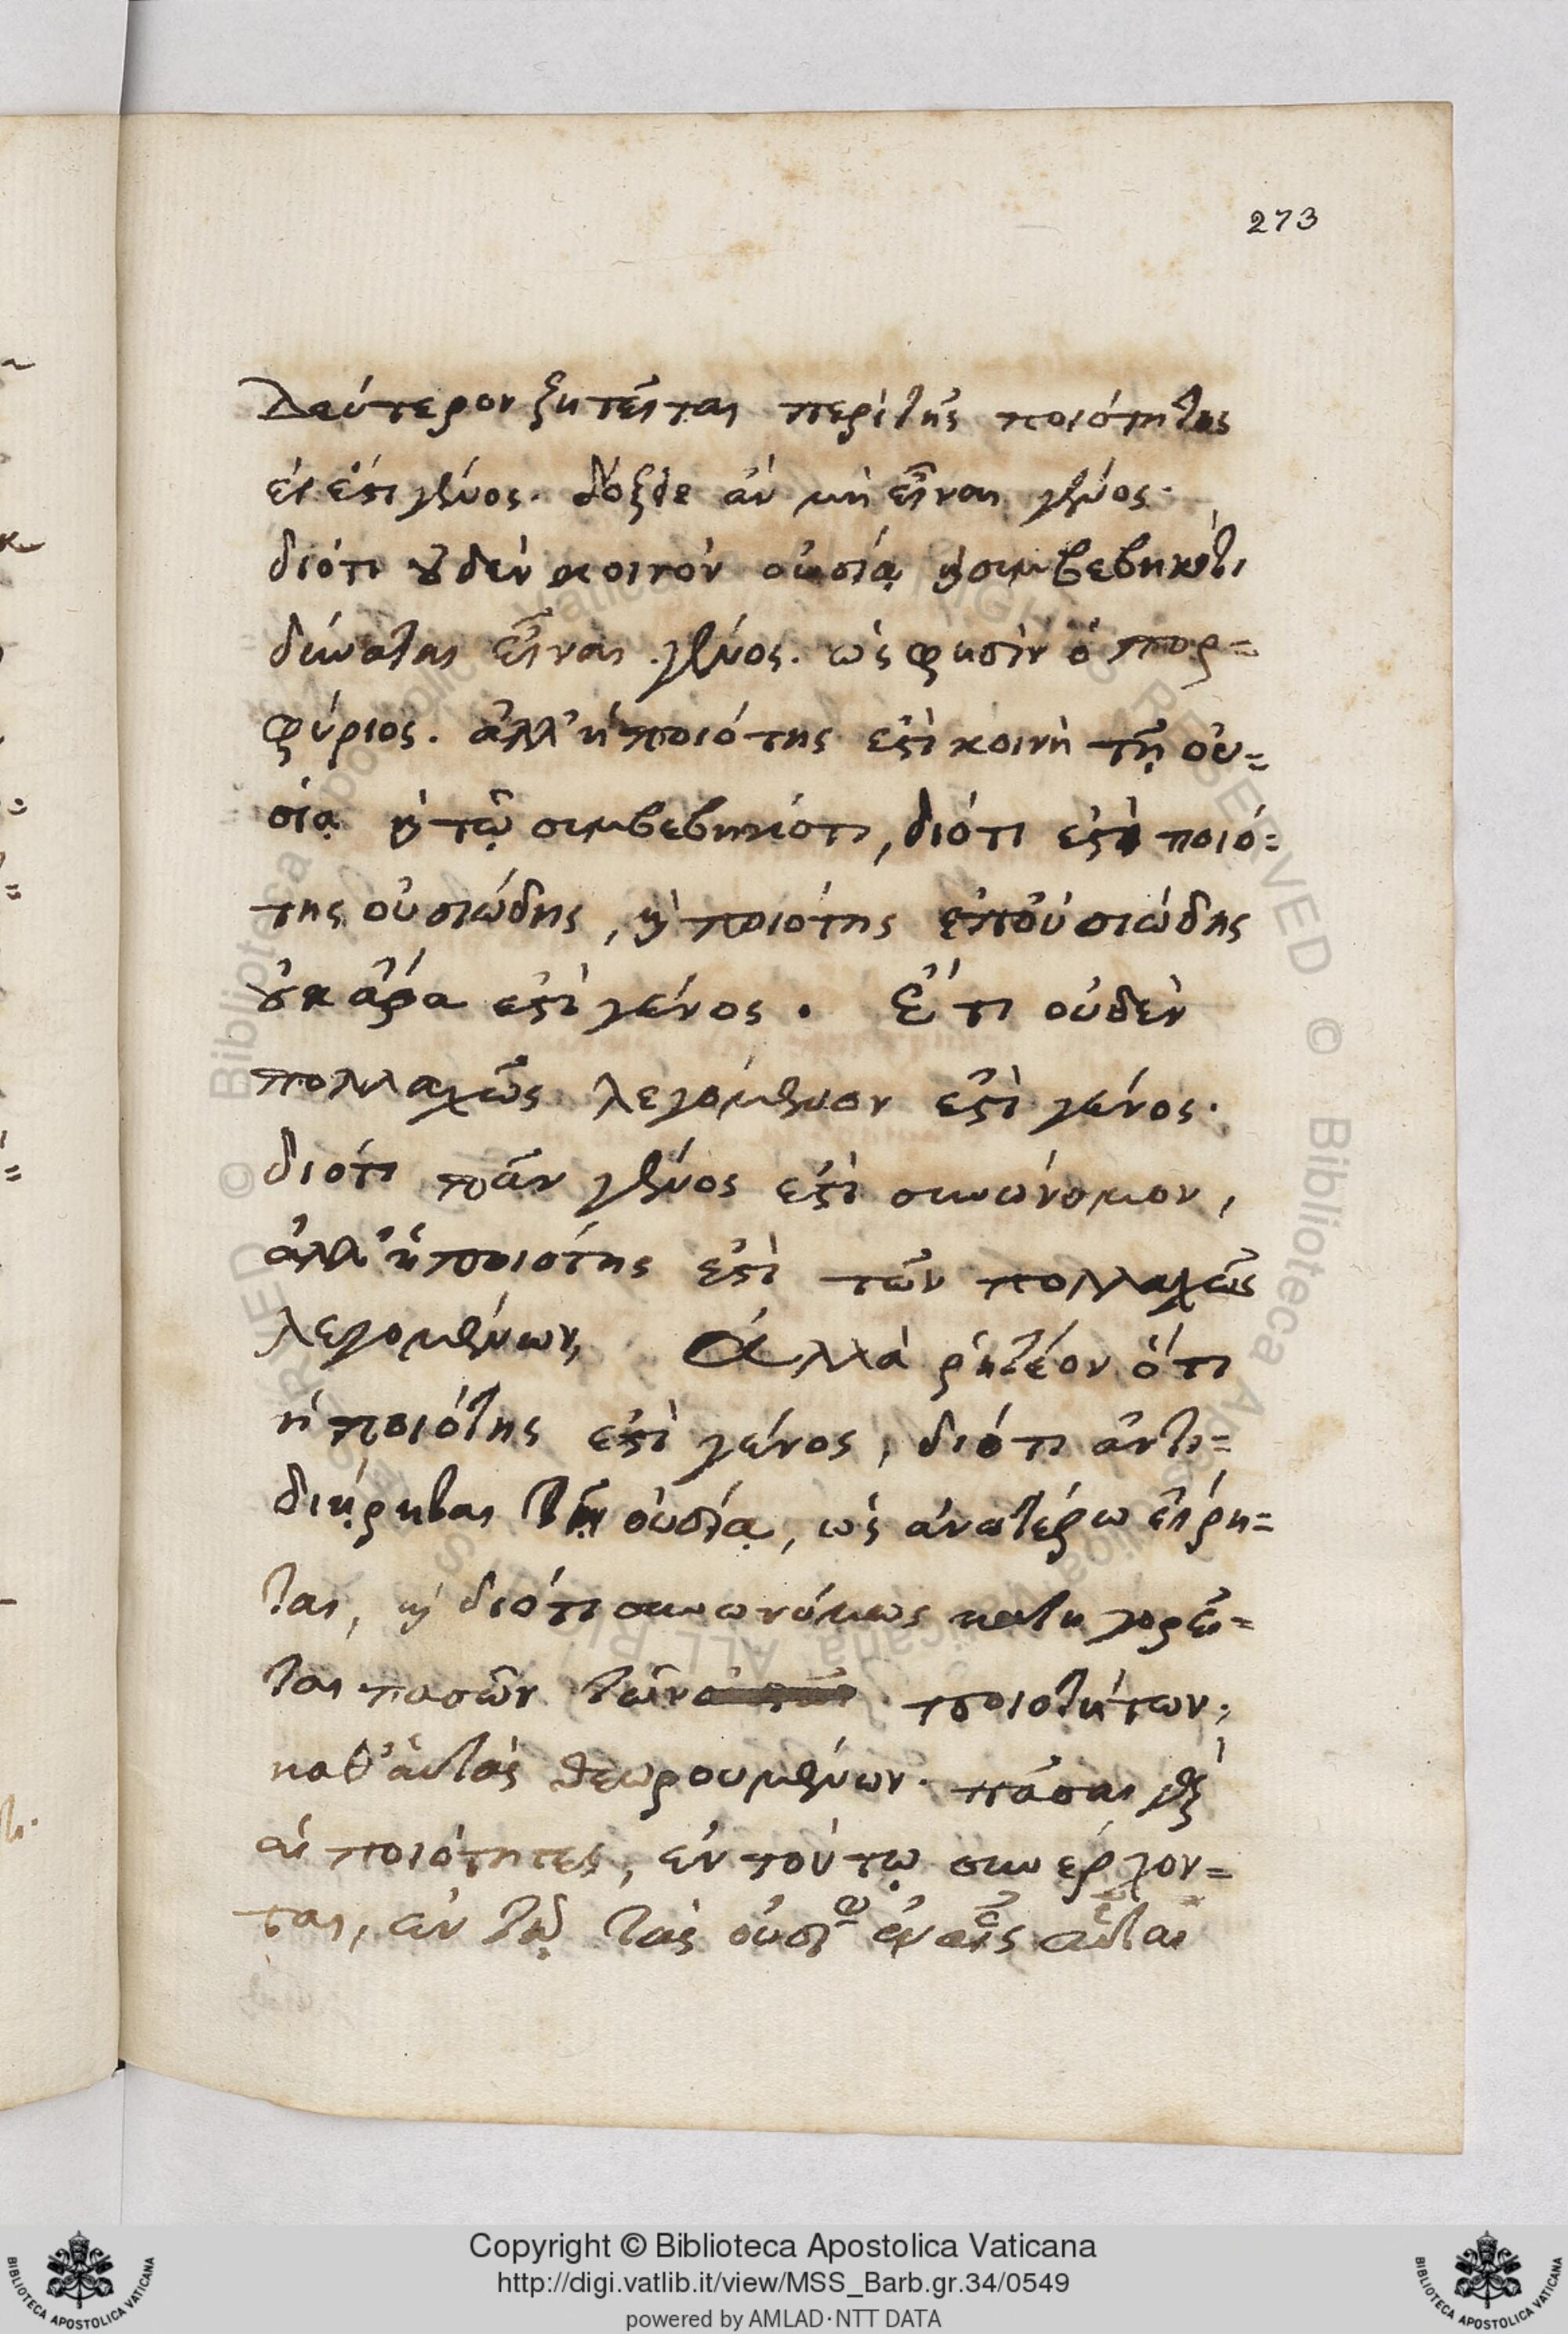 273
Δεύτερον ζητεῖται περὶ τῆς ποιότητος
εἰ ἐστι γένος. δόξειε ἂν μὴ εἶναι γένος.
διότι οὐδὲν κοινὸν οὐσίᾳ καὶ συμβεβηκότι
δύναται εἶναι γένος. ὡς φησὶν ὁ πορ=
φύριος. ἀλλ' ἡ ποιότης ἐστὶ κοινὴ τῇ οὐ=
σίᾳ καὶ τῷ συμβεβηκότι, διότι ἐστὶ ποιό=
της οὐσιώδης, καὶ ποιότης ἐπουσιώδης
οὐκ ἄρα ἐστὶ γένος. Ἔτι οὐδὲν
πολλαχῶς λεγόμενον ἐστὶ γένος.
διότι πᾶν γένος ἐστὶ συνώνυμον,
ἀλλ' ἡ ποιότης ἐστὶ τῶν πολλαχῶς
λεγομένων, Ἀλλὰ ῥητέον ὅτι
ἡ ποιότης ἐστὶ γένος, διότι ἀντι=
διῄρηται τῇ οὐσίᾳ, ὡς ἀνωτέρω εἴρη=
ται, καὶ διότι συνωνύμως κατηγορεῖ=
ται πασῶν τῶν ποιοτήτων,
καθ' αὑτὰς θεωρουμένων. πᾶσαι γὰρ
αἱ ποιότητες, ἐν τούτῳ συνέρχον=
ται, ἐν τῷ τὰς οὐσίας ἐν αἷς αὗται
Copyright © Biblioteca Apostolica Vaticana
http://digi.vatlib.it/view/MSS_Barb.gr.34/0549
powered by AMLAD·NTT DATA